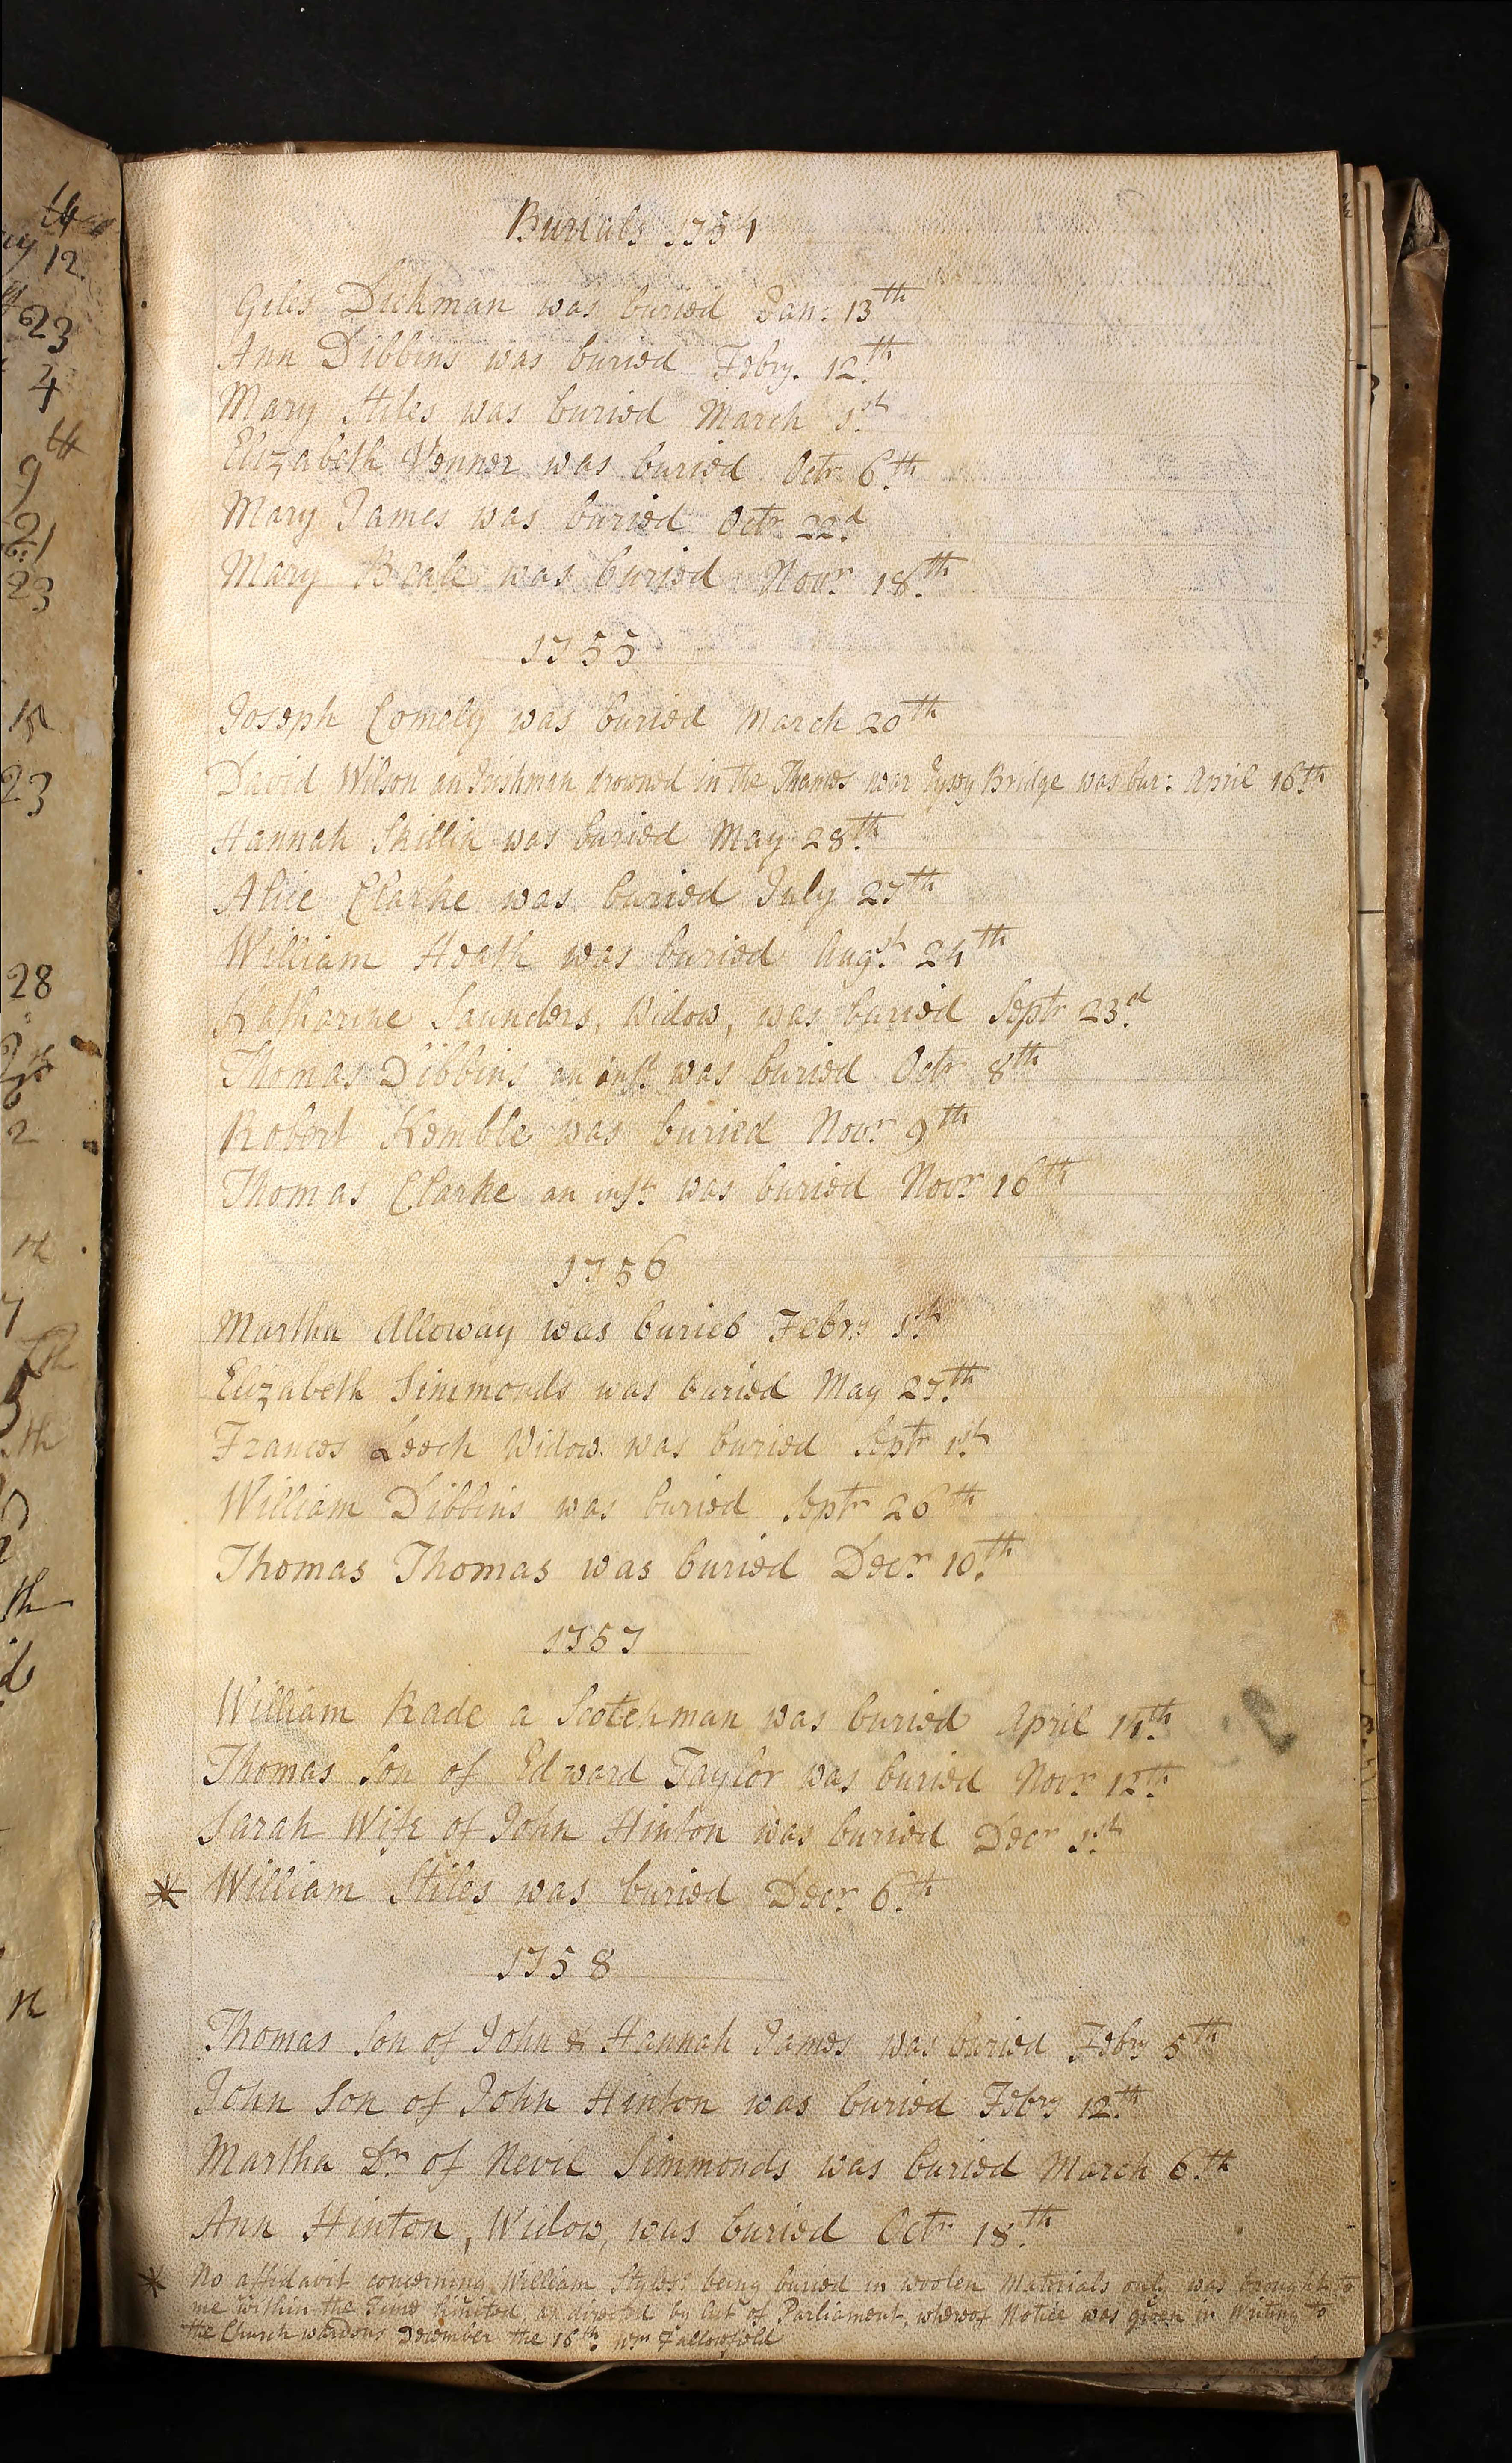 Burials 1754
Giles Dickman was buried Jan: 13th
Ann Dibbins was buried Febry. 12th
Mary Stiles was buried March 1st
Elizabeth Venner was buried Octr 6th
Mary James was buried Octr 22d
Mary Beale was buried Novr 18th
1755
Joseph Comely was buried March 20th
David Wilson an Irishman drowned in the Thames near Bridge was bur: April 16th
Hannah Skillin was buried May 28th
Alice Clarke was buried July 27th
William Heath was buried Augst 24th
Katharine Saunders, Widow, was buried Septr 23d
Thomas Dibbins an inft was buried Octr 8th
Robert Kemble was buried Novr 9th
Thomas Clarke an inft was buried Novr 16th
1756
Martha Alloway was buried Febry 1st
Elizabeth Simmonds was buried May 27th
Frances Leech Widow was buried Septr 1st
William Dibbins was buried Septr 26th
Thomas Thomas was buried Decr 10th
1757
William Rade a Scotchman was buried April 14th
Thomas Son of Edward Taylor was buried Novr 12th
Sarah Wife of John Hinton was buried Decr 1st
* William Stiles was buried Decr 6th
1758
Thomas Son of John & Hannah James was buried Febry 5th
John Son of John Hinton was buried Febry 12th
Martha Dr of Nevil Simmonds was buried March 6th
Ann Hinton, Widow, was buried Octr 18th
* No affidavit concerning William Styles's being buried in woolen Materials only was brought to
me within the Time limited, as directed by Act of Parliament, whereof Notice was given in Writing to
the Church wardens December the 16th Wm Fallowfield